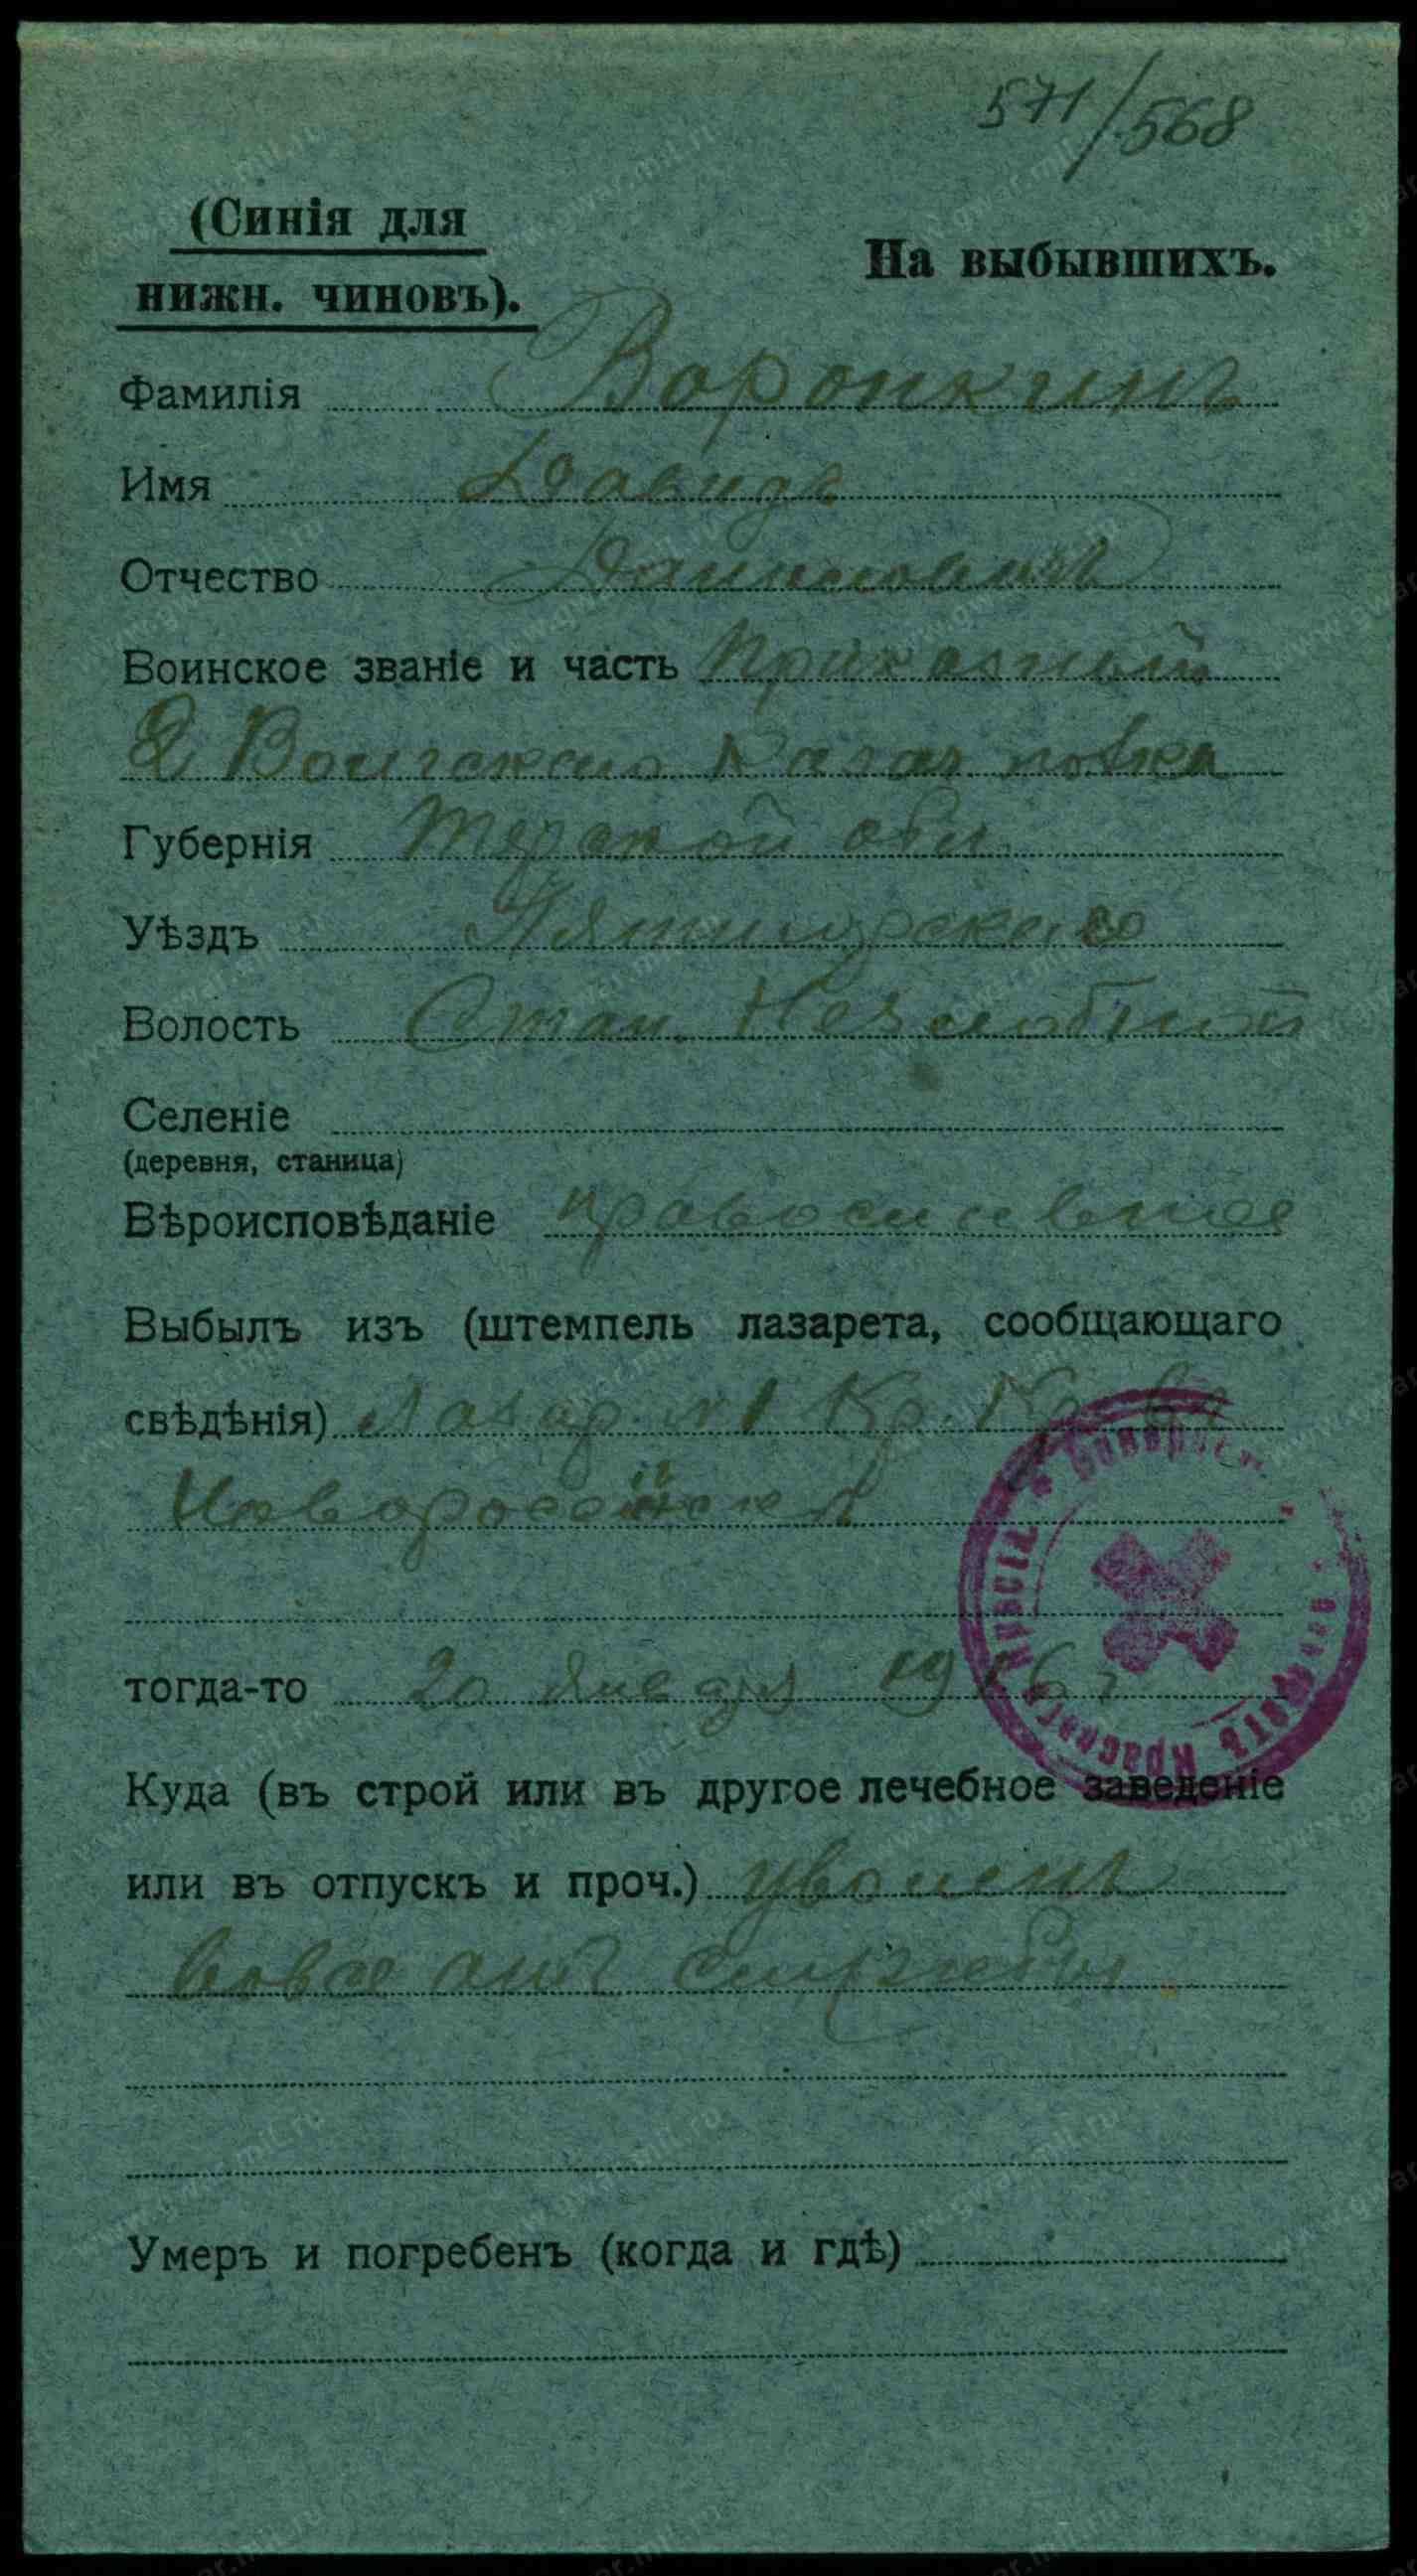 571/568
(Синія для
нижн. чиновъ).
На выбывшихъ.
Фамилія Воронкинъ
Имя Давидъ
Отчество
Воинское званіе и часть Приказный
2 Волгскаго Казач полка
Губернія Терской обл.
Уѣздъ Пятигорскаго
Волость Стан. Незлобной
Селеніе
(деревня, станица)
Вѣроисповѣданіе православное
Выбылъ изъ (штемпель лазарета, сообщающаго
свѣдѣнія) Лазар. №1 Кр. Кр. въ
Новороссійскѣ
тогда-то 20 Января 1916 г
Куда (въ строй или въ другое лечебное заведеніе
или въ отпускъ и проч.) уволенъ
вовсе отъ службы.
Умеръ и погребенъ (когда и гдѣ)